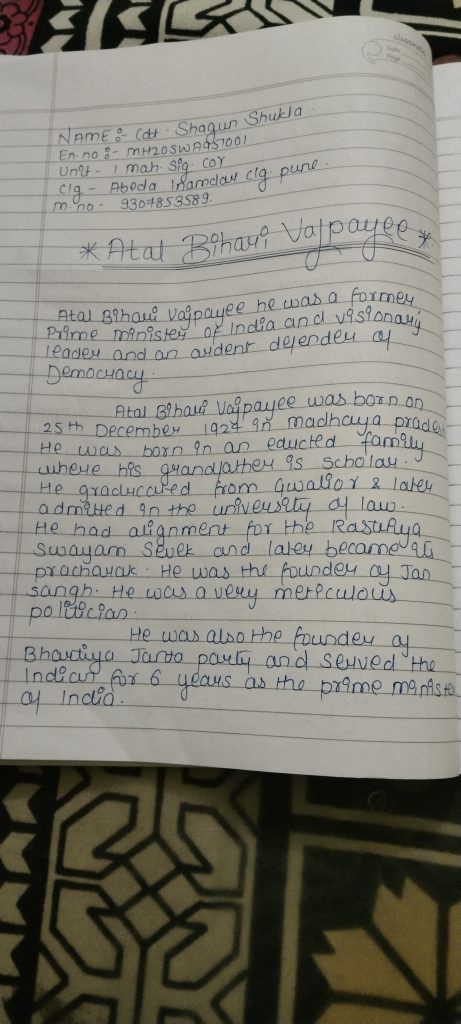 classmate
Date
Page
NAME :- Cdt. Shagun Shukla
En.no :- MH20SWA951001
Unit - 1 mah. Sig. Coy
Clg - Abeda Inamdar clg. pune.
m.no - 9307853589.
* Atal Bihari Vajpayee *
Atal Bihari Vajpayee he was a former
Prime minister of India and visionary
leader and an ardent defender of
Democracy.
Atal Bihari Vajpayee was born on
25th December 1924 in madhaya prades
He was born in an educted family
where his grandfather is scholar.
He graducated from Gwalior & later
admitted in the university of law.
He had alignment for the Rastriya
Swayam Sevek and later became its
pracharak. He was the founder of Jan
sangh. He was a very meticulous
politician.
He was also the founder of
Bhartiya Janta party and served the
Indian for 6 years as the prime ministe
of India.